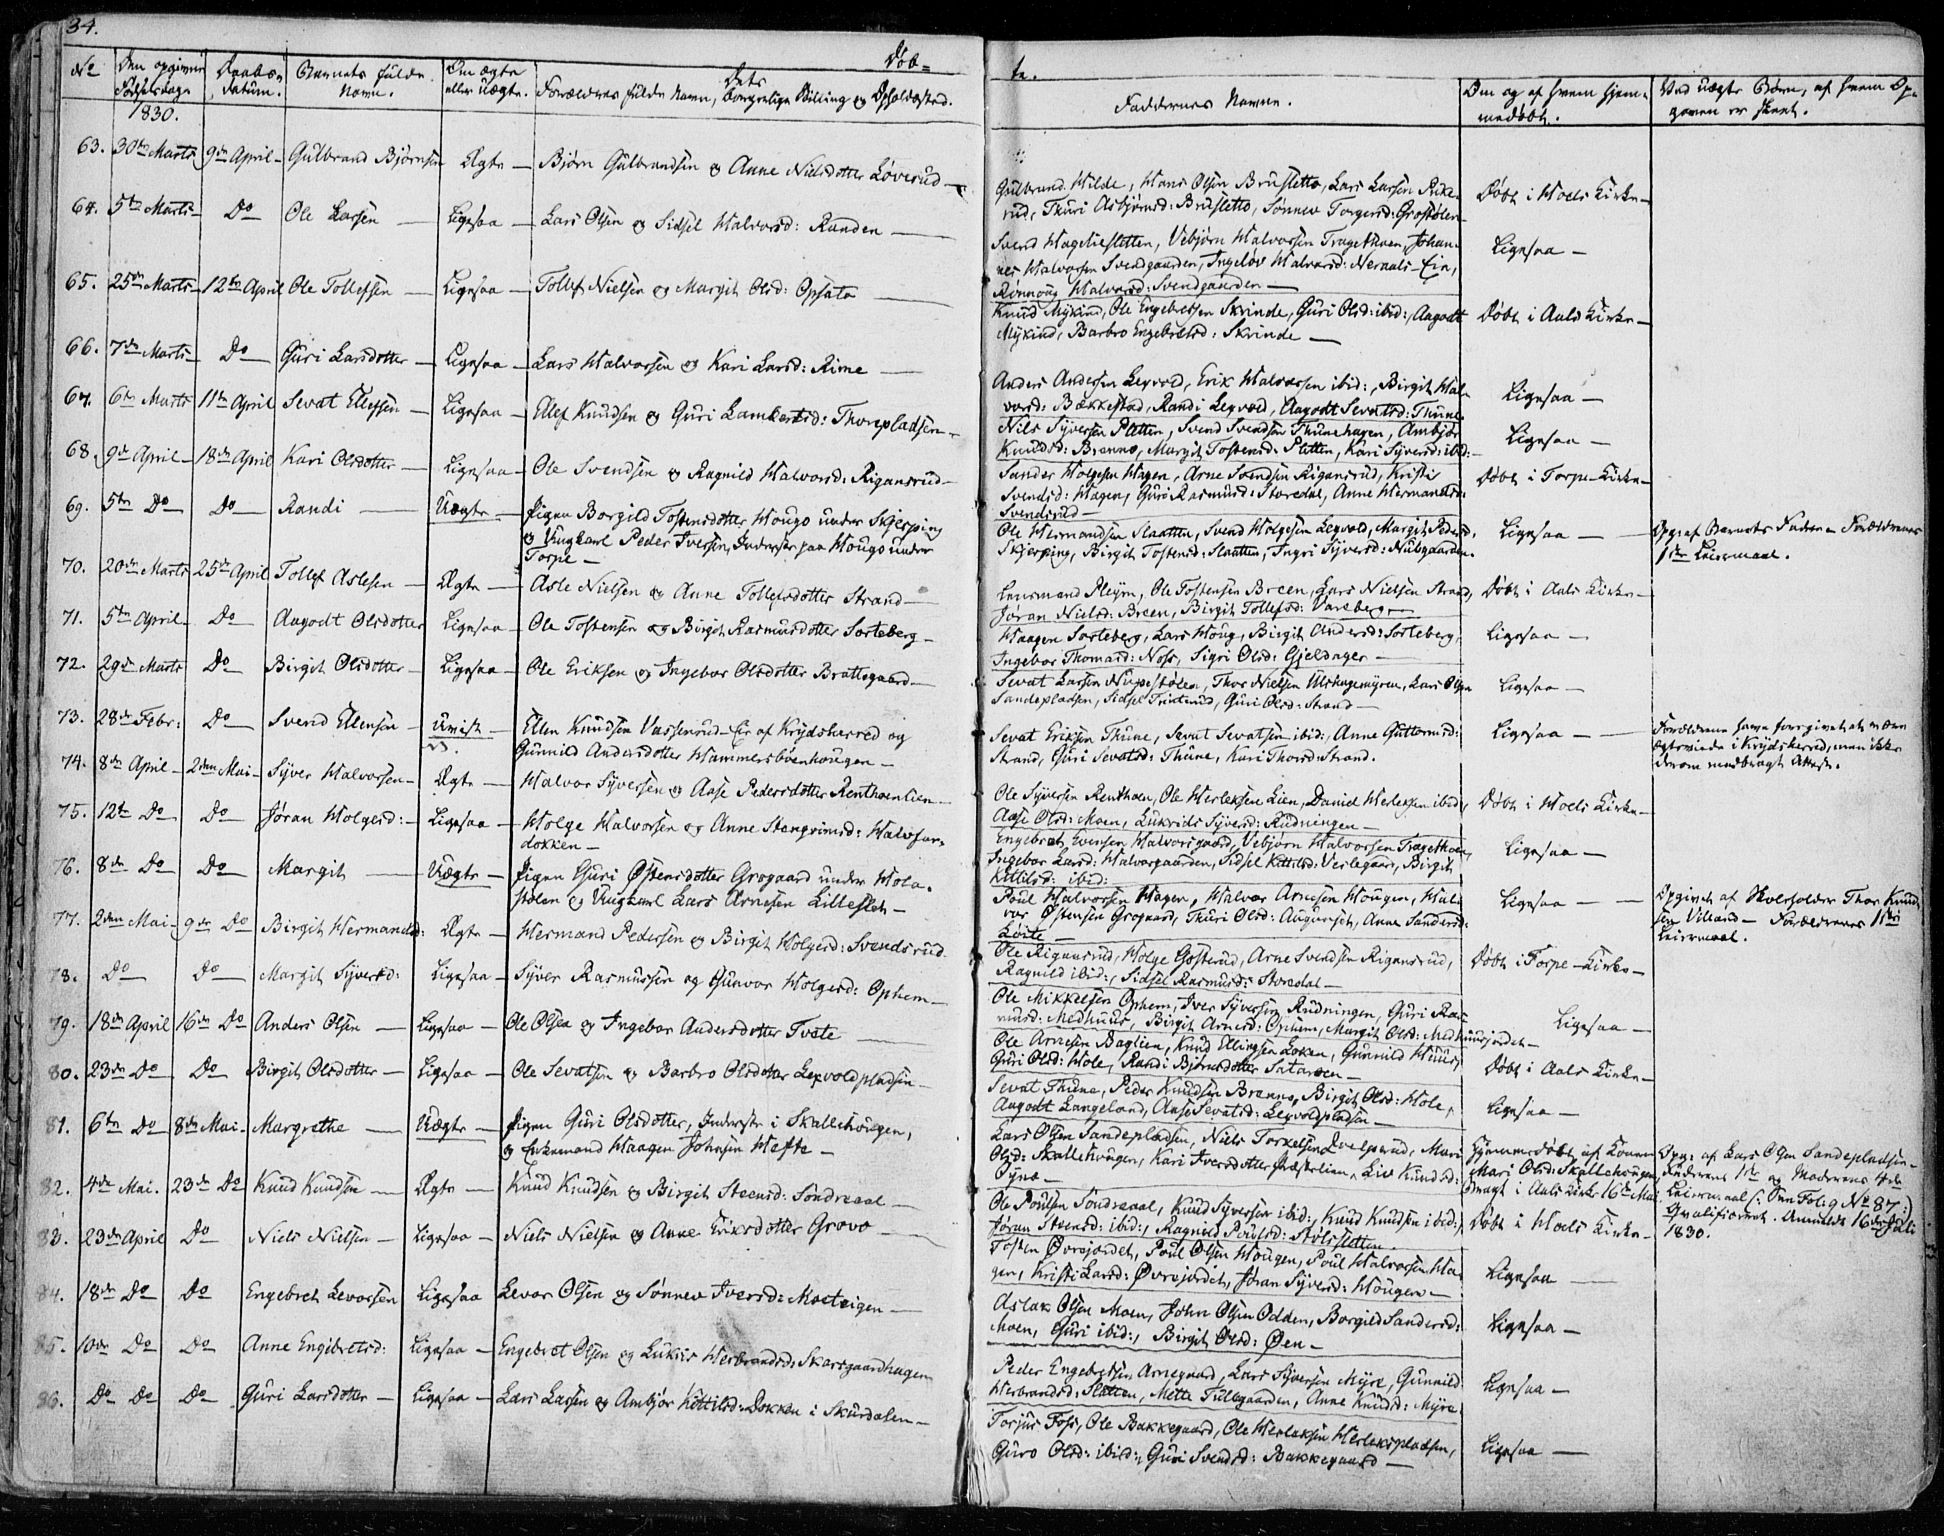 34.
Døb=
te.
No
Den opgivne Fødselsdag.
Daabens Datum.
Barnets fulde Navn.
Om ægte eller uægte.
Forældrenes fulde Navn, Dets borgerlige Stilling og Opholdssted.
Faddernes Navne.
Om og af hvem hjemmedøbt.
Ved uægte Børn, af hvem Opgaven er skeet.
1830.
63. 30te Marts 9de April Gulbrand Bjørnsen Ægte Bjørn Gulbrandsen og Anne Nielsdotter Løverud
Gulbrand Hilde, Hans Olsen Brusletto, Lars Larsen
rud, Thuri Asbjørnsd: Brusletto, Sønnev Torgersd: Døbt i Hols Kirke
64. 5te Marts Do Ole Larsen Ligesaa Lars Olsen og Sidsel Halvorsd: Randen
Svend Hageliesletten, Vebjørn Halvorsen Tragethoen, Johan-
nes Halvorsen Svendgaarden, Ingeløv Halvorsd: Ligesaa
Rønnoug Halvorsd: Svendgaarden
65. 25de Marts 12te April Ole Tollefsen Ligesaa Tollef Nielsen og Margit Olsd: Opsata
Knud Mykind, Ole Engebretsen Skrinde, Guri Olsd: ibid:, Aagodt Døbt i Aals Kirke
Mykind, Barbro Engebretsd: Skrinde
66. 7de Marts Do Guri Larsdotter Ligesaa Lars Halvorsen og Kari Larsd: Rime
Anders Andersen Leqvod, Erik Halvorsen ibid:, Birgit Hal-
vorsd: Bækkestad, Randi Leqvod, Aagodt Sevatsd: Thune Ligesaa
67. 6te Marts 11te April Sevat Ellefsen Ligesaa Ellef Knudsen og Guri Lambertsd: Thonpladsen
Nils Syversen Platten, Svend Svendsen Thunehagen, Ambjør
Knudsd: Brenno, Margit Tostensd: Platten, Kari Syversd: ibid: Ligesaa
68. 9de April 18de April Kari Olsdotter Ligesaa Ole Svendsen og Ragnild Halvorsd: Rigansrud
Sander Holgesen Hagen, Arne Svendsen Rigansrud, Kristi Døbt i Torpe Kirke
Svendsd: Hagen, Guri Rasmusd: Storedal, Anne Hermansd:
Svendsrud
69. 5te Do Do Randi Uægte Pigen Borgild Tostensdotter Hougo under Skjerping
og Ungkarl Peder Iversen, Inderste paa Hougo under
Torpe
Ole Hermandsen Slaatten, Svend Holgesen Leqvod, Margit Pedersd: Ligesaa Opg: af Barnets Fader Forældrenes
Skjerping, Birgit Tostensd: Slaatten, Ingri Syversd: Nubgaarden. 1ste Leiermaal.
70. 20de Marts 25de April Tollef Aslesen Ægte Asle Nielsen og Anne Tollefsdotter Strand
Lensmand Pleym, Ole Tostensen Breen, Lars Nielsen Strand, Døbt i Aals Kirke
Jøran Nielsd: Breen, Birgit Tollefsd: Vareberg
71. 5te April Do Aagodt Olsdotter Ligesaa Ole Tostensen og Birgit Rasmusdotter Sorteberg
Haagen Sorteberg, Lars Houg, Birgit Andersd: Sorteberg, Ligesaa
Ingebor Thomasd: Noss, Sigri Olsd: Gjeldager
72. 29de Marts Do Birgit Olsdotter Ligesaa Ole Eriksen og Ingebor Olsdotter Brattegaard
Sevat Larsen Nupestølen, Thor Nielsen Ulshagemyren, Lars Olsen Ligesaa
Sandepladsen, Sidsel Trinterud, Guri Olsd: Strand
73. 28de Febr: Do Svend Ellensen Uvist Ellen Knudsen Vassenrud-Eie af Krydsherred og
Gunnild Andersdotter Hammersbøenhougen
Sevat Eriksen Thune, Sevat Sevatsen ibid:, Anne Guttormsd: Ligesaa Forældrene have foregivet at være
Strand, Guri Sevatsd: Thune, Kari Thorsd: Strand. ægteviede i Krydsherred, men ikke
derom medbragt Attest.
74. 8de April 2den Mai Syver Halvorsen Ægte Halvor Syversen og Aase Pedersdotter Renthoenlien
Ole Syversen Renthoen, Ole Herleksen Lien, Daniel Herleksen ibid:, Døbt i Hols Kirke
Aase Olsd: Moen, Lukrids Syversd: Rudningen
75. 12te Do Do Jøran Holgersd: Ligesaa Holge Halvorsen og Anne Stengrimsd: Halvsan-
dokken
Engebret Evensen Halvorsgaard, Vebjørn Halvorsen Tragethoen, Ligesaa
Ingebor Larsd: Halvorgaarden, Sidsel Kittilsd: Verlegaard, Birgit
Kittilsd: ibid:
76. 8de Do Do Margit Uægte Pigen Guri Østensdotter Grogaard under Hola-
stølen og Ungkarl Lars Arnesen Lilleslet
Poul Halvorsen Hagen, Halvor Arnesen Hougen, Hal- Ligesaa Opgivet af Skoleholder Thor Knud-
vor Østensen Grogaard, Thuri Olsd: Augunset, Anne Sandersd: sen Villand Forældrenes 1ste
Løite Leiermaal.
77. 2den Mai 9de Do Birgit Hermandsd: Ægte Hermand Pedersen og Birgit Holgersd: Svendsrud
Ole Rigansrud, Holge Gosterud, Arne Svendsen Rigansrud, Døbt i Torpe Kirke
Ragnild ibid:, Sidsel Rasmusd: Storedal
78. Do Do Margit Syversd: Ligesaa Syver Rasmussen og Gunvor Holgersd: Ophem
Ole Mikkelsen Ophem, Iver Syversen Rudningen, Guri Ras-
musd: Medhuus, Birgit Arnesd: Ophem, Margit Olsd: Medhuusjordet Ligesaa
79. 18de April 16de Do Anders Olsen Ligesaa Ole Olsen og Ingebor Andersdotter Tvete
Ole Arnesen Baglien, Knud Ellingsen Loken, Gunnild Huus,
Guri Olsd: Hole, Randi Bjørnsdotter Sataroen Døbt i Aals Kirke
80. 23de Do Do Birgit Olsdotter Ligesaa Ole Sevatsen og Barbro Olsdotter Leqvoldpladsen
Sevat Thune, Peder Knudsen Brenno, Birgit Olsd: Hole, Ligesaa
Aagodt Langeland, Aase Sevatsd: Leqvoldpladsen
81. 6te Do 8de Mai Margrethe Uægte Pigen Guri Olsdotter, Inderste i Skallehougen,
og Enkemand Haagen Johnsen Hefte
Lars Olsen Sandepladsen, Niels Torkelsen Mari Hjemmedøbt af Konen Opg: af Lars Olsen Sandepladsen
Olsd: Skallehougen, Kari Iversdotter Liv Knudsd: Mari Olsd: Skallehougen, Faderens 1ste og Moderens 4de
bragt i Aals Kirke 16de Mai Leiermaal No 87
Qvalificeret. Anmeldt 16de Juli
1830.
82. 4de Mai. 23de Do Knud Knudsen Ægte Knud Knudsen og Birgit Steensd: Sondreaal
Ole Poulsen Sondreaal, Knud Syversen ibid:, Knud Knudsen ibid:, Døbt i Hols Kirke
Jøran Steensd: ibid:, Ragnild Poulsd: Stolsletten.
83. 23de April Do Niels Nielsen Ligesaa Niels Nielsen og Anne Eriksdotter Grovo
Tosten Øvrejordet, Poul Olsen Hougen, Poul Halvorsen Ha-
gen, Kristi Larsd: Øvrejordet, Jøran Syversd: Hougen Ligesaa
84. 18de Do Do Engebret Levorsen Ligesaa Levor Olsen og Sønnev Iversd: Moeteigen
Aslak Olsen Moen, John Olsen Odden, Borgild Sandersd:
Moen, Guri ibid:, Birgit Olsd: Øen Ligesaa
85. 10de Do Do Anne Engebretsd: Ligesaa Engebret Olsen og Lukris Herbrandsd: Skarsgaardhagen
Peder Engebretsen Arnegaard, Lars Syversen Myre, Gunnild Ligesaa
Herbrandsd: Sletten, Mette Tuftegaarden, Anne Knudsd: Myre
86. Do Do Do Guri Larsdotter Ligesaa Lars Larsen og Ambjør Kittilsd: Dokken i Skurdalen
Torjus Foss, Ole Bakkegaard, Ole Herleksen Herlekspladsen,
Guro Olsd: ibid:, Guri Svendsd: Bakkegaard Ligesaa